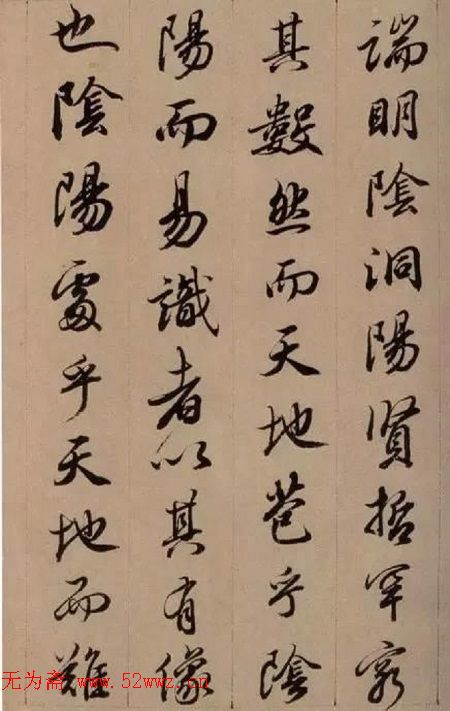 端明陰洞陽賢哲罕窮
其數然而天地苞乎陰
陽而易識者以其有像
也陰陽處乎天地而難
无为斋 www.52wwz.cn